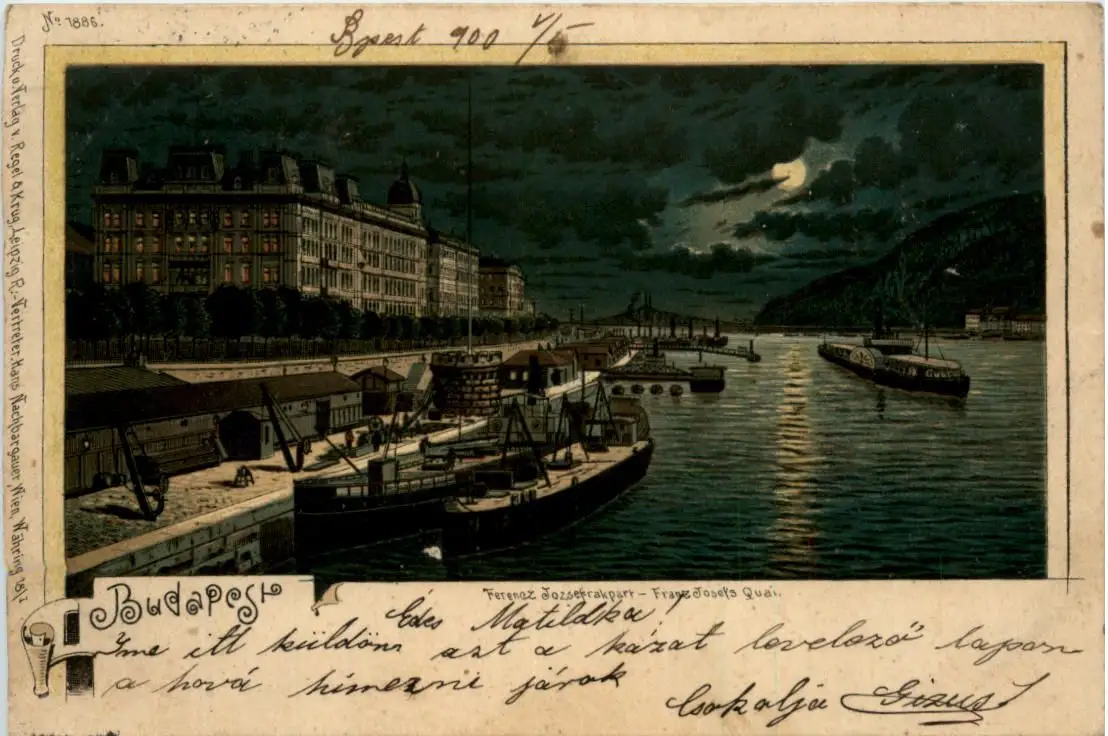 No 1886.
Bpest 900 V/5
Druck u. Verlag v. Regel & Krug, Leipzig R.- Vertreter: Hans Nachbargauer, Wien, Währing 18/1
Budapest
Ferencz Józsefrakpart – Franz Josefs Quai.
Édes Matildka!
Ime itt küldöm azt a házat levelező lapon
a hová hímezni járok
Csokolja Gizus